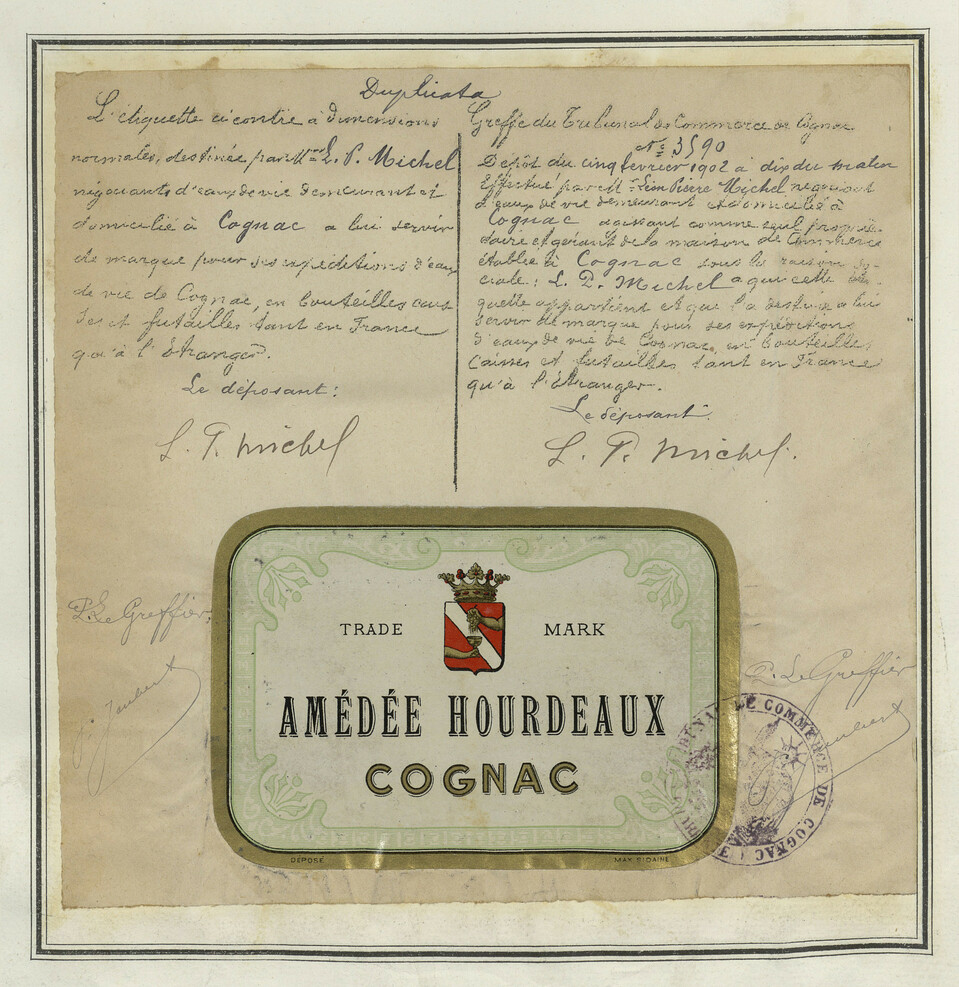 Duplicata
L'étiquette ci contre à dimensions
normales, destinée par Mr L. P. Michel
négociants d'eaux de vie demeurant et
domicilié à Cognac a lui servir
de marque pour ses expéditions d'eaux
de vie de Cognac, en bouteilles cais
ses et futailles tant en France
qu'à l'étranger.
Le déposant:
L. P. Michel
Greffe du Tribunal de Commerce de Cognac
No 3590
Dépôt du cinq février 1902 à dix du matin
Effectué par M. Léon Pierre Michel négociant
d'eaux de vie demeurant et domicilié à
Cognac agissant comme seul proprié-
taire et gérant de la maison de Commerce
établie à Cognac sous la raison so-
ciale: L. P. Michel a qui cette éti-
quette appartient et que l'a destinée a lui
servir de marque pour ses expéditions
d'eaux de vie de Cognac, en bouteilles,
caisses et futailles, tant en France
qu'à l'étranger.
Le déposant
L. P. Michel.
P. Le Greffier,
P. Le Greffier
TRADE MARK
AMÉDÉE HOURDEAUX
COGNAC
DÉPOSÉ
TRIBUNAL DE COMMERCE DE COGNAC